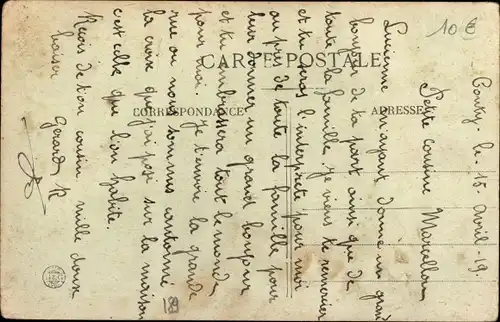 CARTE POSTALE
CORRESPONDANCE
ADRESSE
10 €
le 15 Avril-19
Petite cousine Marcelle
Lucienne m'ayant donné un grand
bonjour de ta part ainsi que de
toute la famille. Je viens te remercier
et tu seras l'interprète pour moi
au près de toute la famille pour
leur donner un grand bonjour
et tu embrassera tout le monde
pour moi. Je t'envoie la grande
rue ou nous sommes cantonné
la croix que j'ai posé sur la maison
c'est celle que l'on habite.
Reçois de ton cousin mille doux
baiser
Gerard R